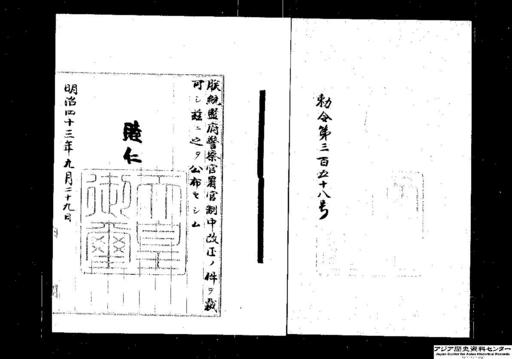 勅令第三百五十八号
朕統監府警察官署官制中改正ノ件ヲ裁
可シ茲ニ之ヲ公布セシム
睦仁
天皇
御璽
明治四十三年九月二十九日
アジア歴史資料センター
Japan Center for Asian Historical Records